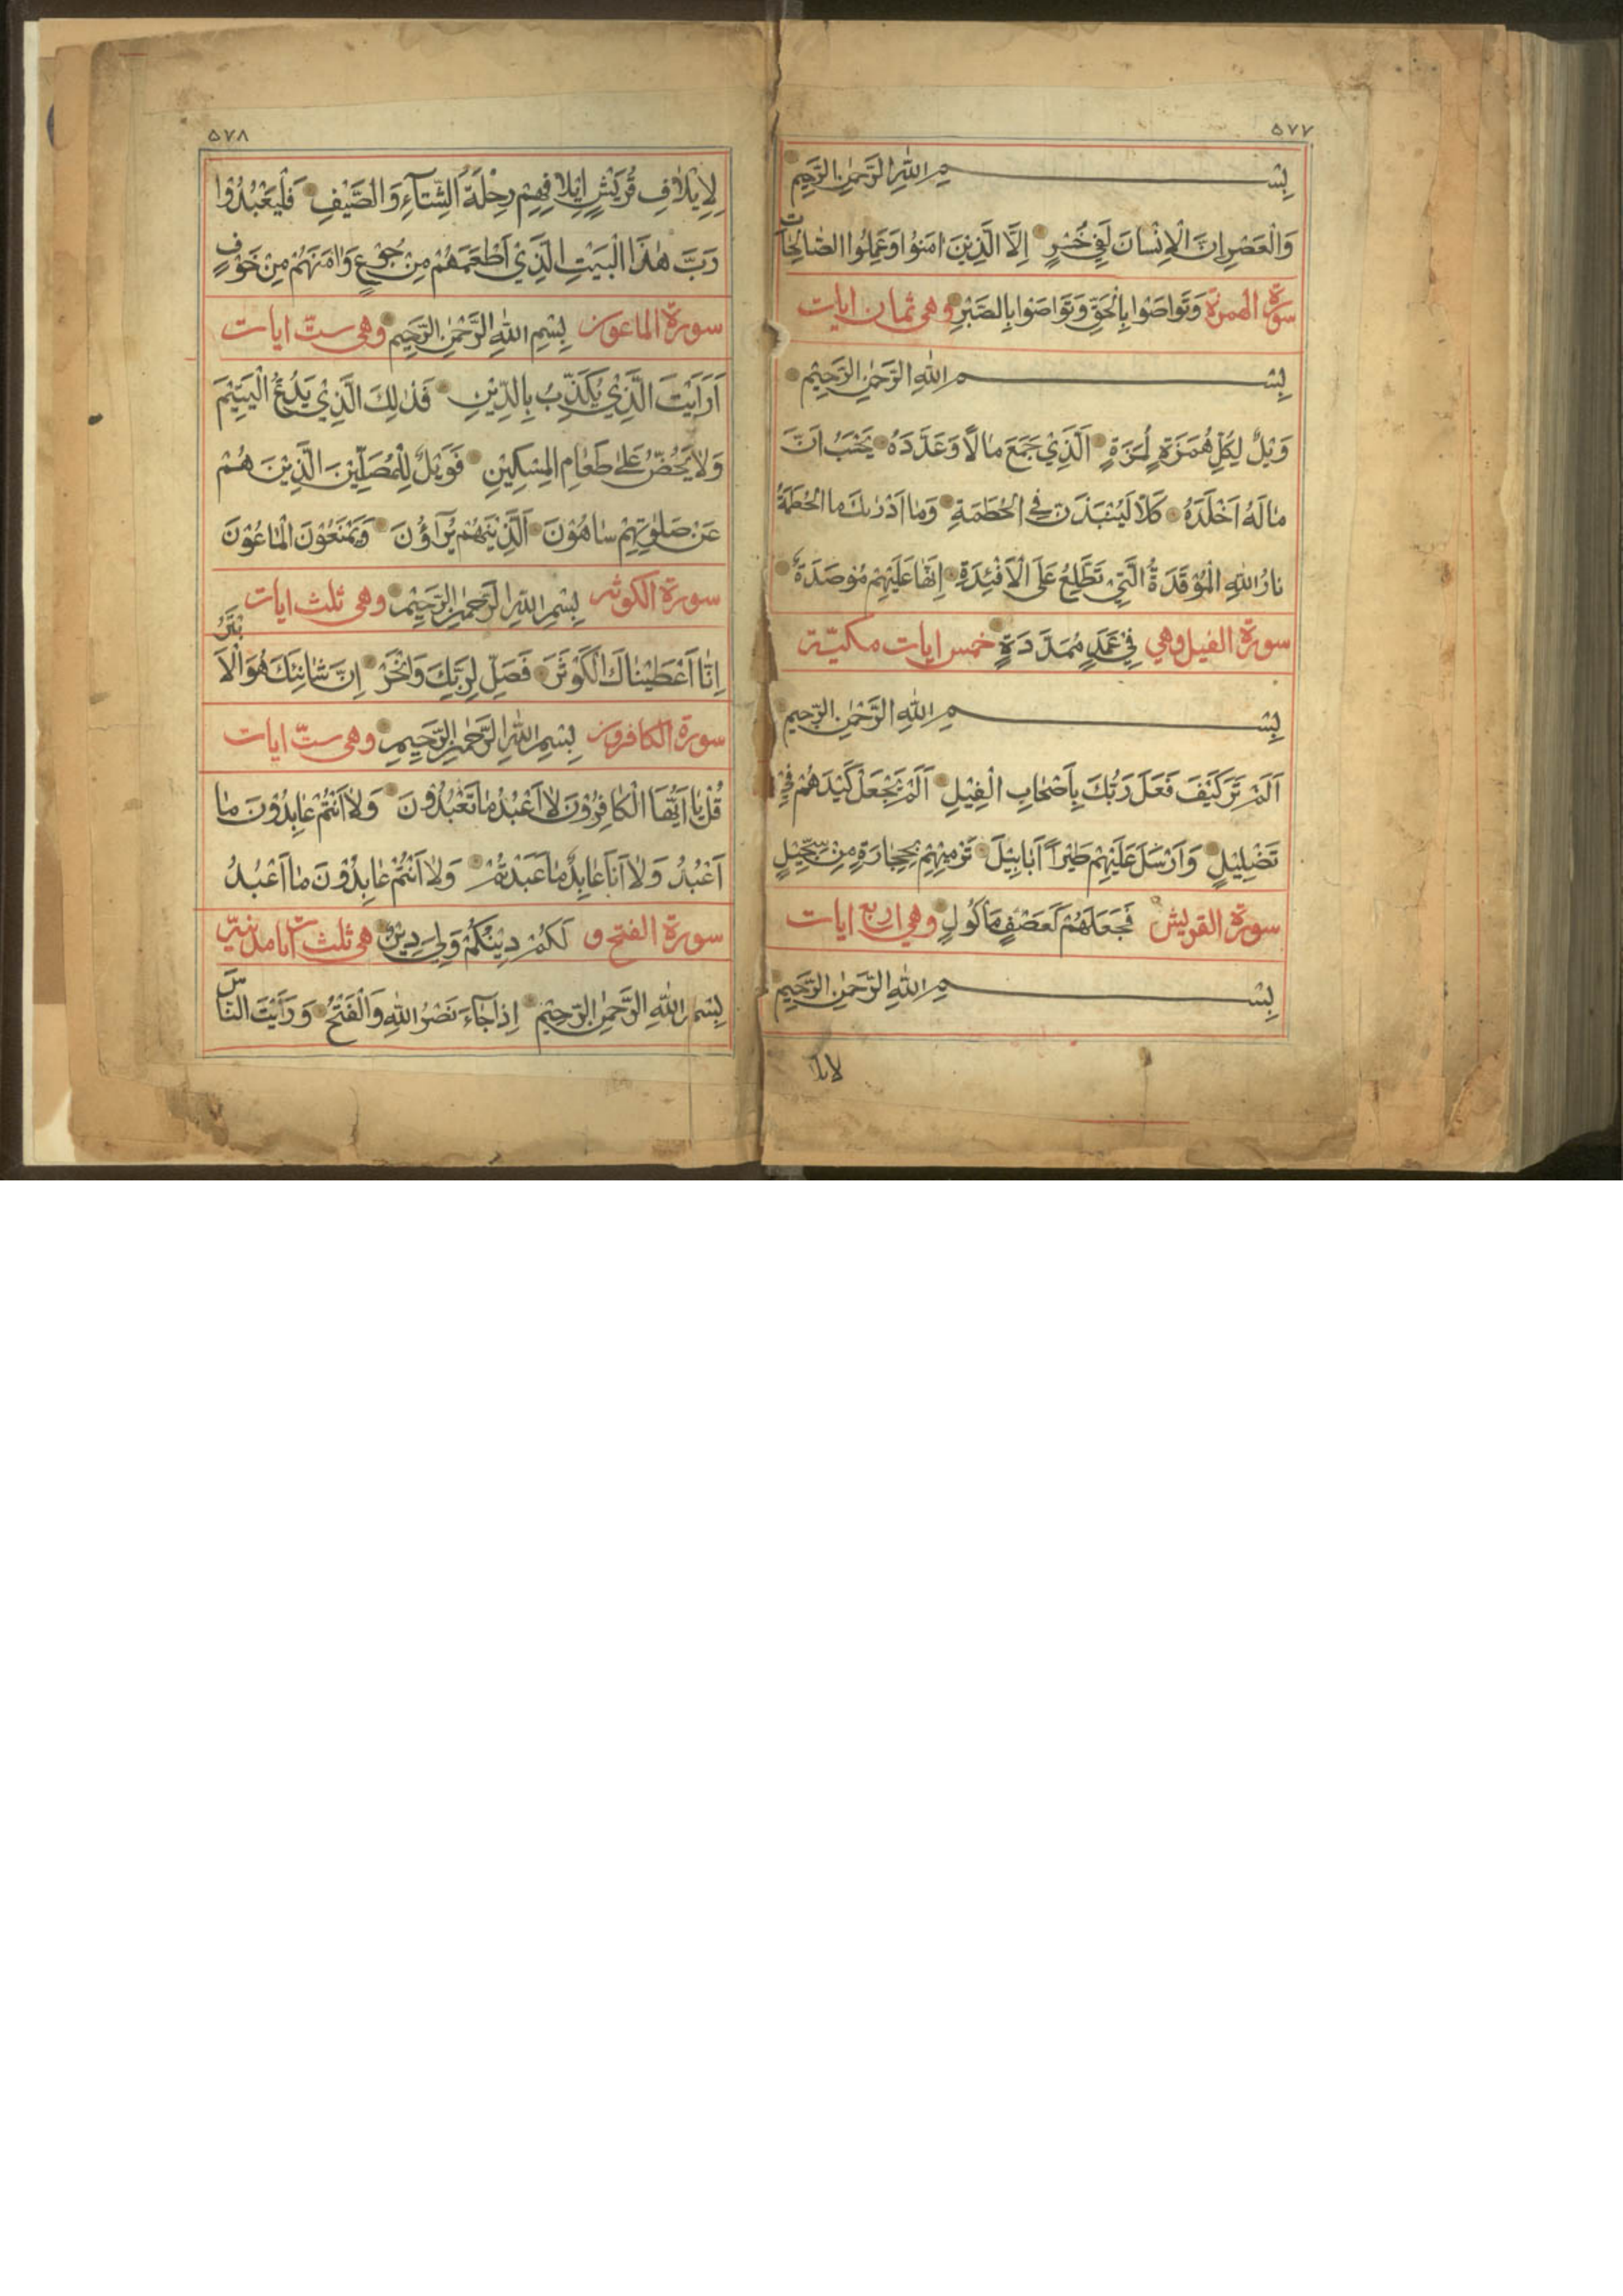 ٥٧٧
بِسْمِ اللّٰهِ الرَّحْمٰنِ الرَّحِيْمِ
وَالْعَصْرِ اِنَّ الْاِنْسَانَ لَفِيْ خُسْرٍ اِلَّا الَّذِيْنَ اٰمَنُوْا وَعَمِلُوا الصَّالِحَاتِ
سورة الهمزة وَتَوَاصَوْا بِالْحَقِّ وَتَوَاصَوْا بِالصَّبْرِ وهى ثمان ايات
بِسْمِ اللّٰهِ الرَّحْمٰنِ الرَّحِيْمِ
وَيْلٌ لِكُلِّ هُمَزَةٍ لُمَزَةٍ اَلَّذِيْ جَمَعَ مَالًا وَعَدَّدَهُ يَحْسَبُ اَنَّ
مَالَهُ اَخْلَدَهُ كَلَّا لَيُنْبَذَنَّ فِي الْحُطَمَةِ وَمَا اَدْرٰىكَ مَا الْحُطَمَةُ
نَارُ اللّٰهِ الْمُوْقَدَةُ الَّتِيْ تَطَّلِعُ عَلَى الْاَفْئِدَةِ اِنَّهَا عَلَيْهِمْ مُؤْصَدَةٌ
سورة الفيل وهي فِيْ عَمَدٍ مُمَدَّدَةٍ خمس ايات مكيّة
بِسْمِ اللّٰهِ الرَّحْمٰنِ الرَّحِيْمِ
اَلَمْ تَرَ كَيْفَ فَعَلَ رَبُّكَ بِاَصْحَابِ الْفِيْلِ اَلَمْ يَجْعَلْ كَيْدَهُمْ فِيْ
تَضْلِيْلٍ وَاَرْسَلَ عَلَيْهِمْ طَيْرًا اَبَابِيْلَ تَرْمِيْهِمْ بِحِجَارَةٍ مِنْ سِجِّيْلٍ
سورة القريش فَجَعَلَهُمْ كَعَصْفٍ مَأْكُوْلٍ وهي اربع ايات
بِسْمِ اللّٰهِ الرَّحْمٰنِ الرَّحِيْمِ
لايلا
٥٧٨
لِاِيْلَافِ قُرَيْشٍ اِيْلَافِهِمْ رِحْلَةَ الشِّتَآءِ وَالصَّيْفِ فَلْيَعْبُدُوْا
رَبَّ هٰذَا الْبَيْتِ الَّذِيْ اَطْعَمَهُمْ مِنْ جُوْعٍ وَاٰمَنَهُمْ مِنْ خَوْفٍ
سورة الماعون بِسْمِ اللّٰهِ الرَّحْمٰنِ الرَّحِيْمِ وهى ستّ ايات
اَرَاَيْتَ الَّذِيْ يُكَذِّبُ بِالدِّيْنِ فَذٰلِكَ الَّذِيْ يَدُعُّ الْيَتِيْمَ
وَلَا يَحُضُّ عَلٰى طَعَامِ الْمِسْكِيْنِ فَوَيْلٌ لِلْمُصَلِّيْنَ الَّذِيْنَ هُمْ
عَنْ صَلٰوتِهِمْ سَاهُوْنَ اَلَّذِيْنَ هُمْ يُرَآؤُنَ وَيَمْنَعُوْنَ الْمَاعُوْنَ
سورة الكوثر بِسْمِ اللّٰهِ الرَّحْمٰنِ الرَّحِيْمِ وهى ثلث ايات
اِنَّا اَعْطَيْنَاكَ الْكَوْثَرَ فَصَلِّ لِرَبِّكَ وَانْحَرْ اِنَّ شَانِئَكَ هُوَ الْاَبْتَرُ
سورة الكافرون بِسْمِ اللّٰهِ الرَّحْمٰنِ الرَّحِيْمِ وهى ستّ ايات
قُلْ يَا اَيُّهَا الْكَافِرُوْنَ لَا اَعْبُدُ مَا تَعْبُدُوْنَ وَلَا اَنْتُمْ عَابِدُوْنَ مَا
اَعْبُدُ وَلَا اَنَا عَابِدٌ مَا عَبَدْتُمْ وَلَا اَنْتُمْ عَابِدُوْنَ مَا اَعْبُدُ
سورة الفتح و لَكُمْ دِيْنُكُمْ وَلِيَ دِيْنِ هى ثلث ايات مدنيّة
بِسْمِ اللّٰهِ الرَّحْمٰنِ الرَّحِيْمِ اِذَا جَآءَ نَصْرُ اللّٰهِ وَالْفَتْحُ وَرَاَيْتَ النَّاسَ